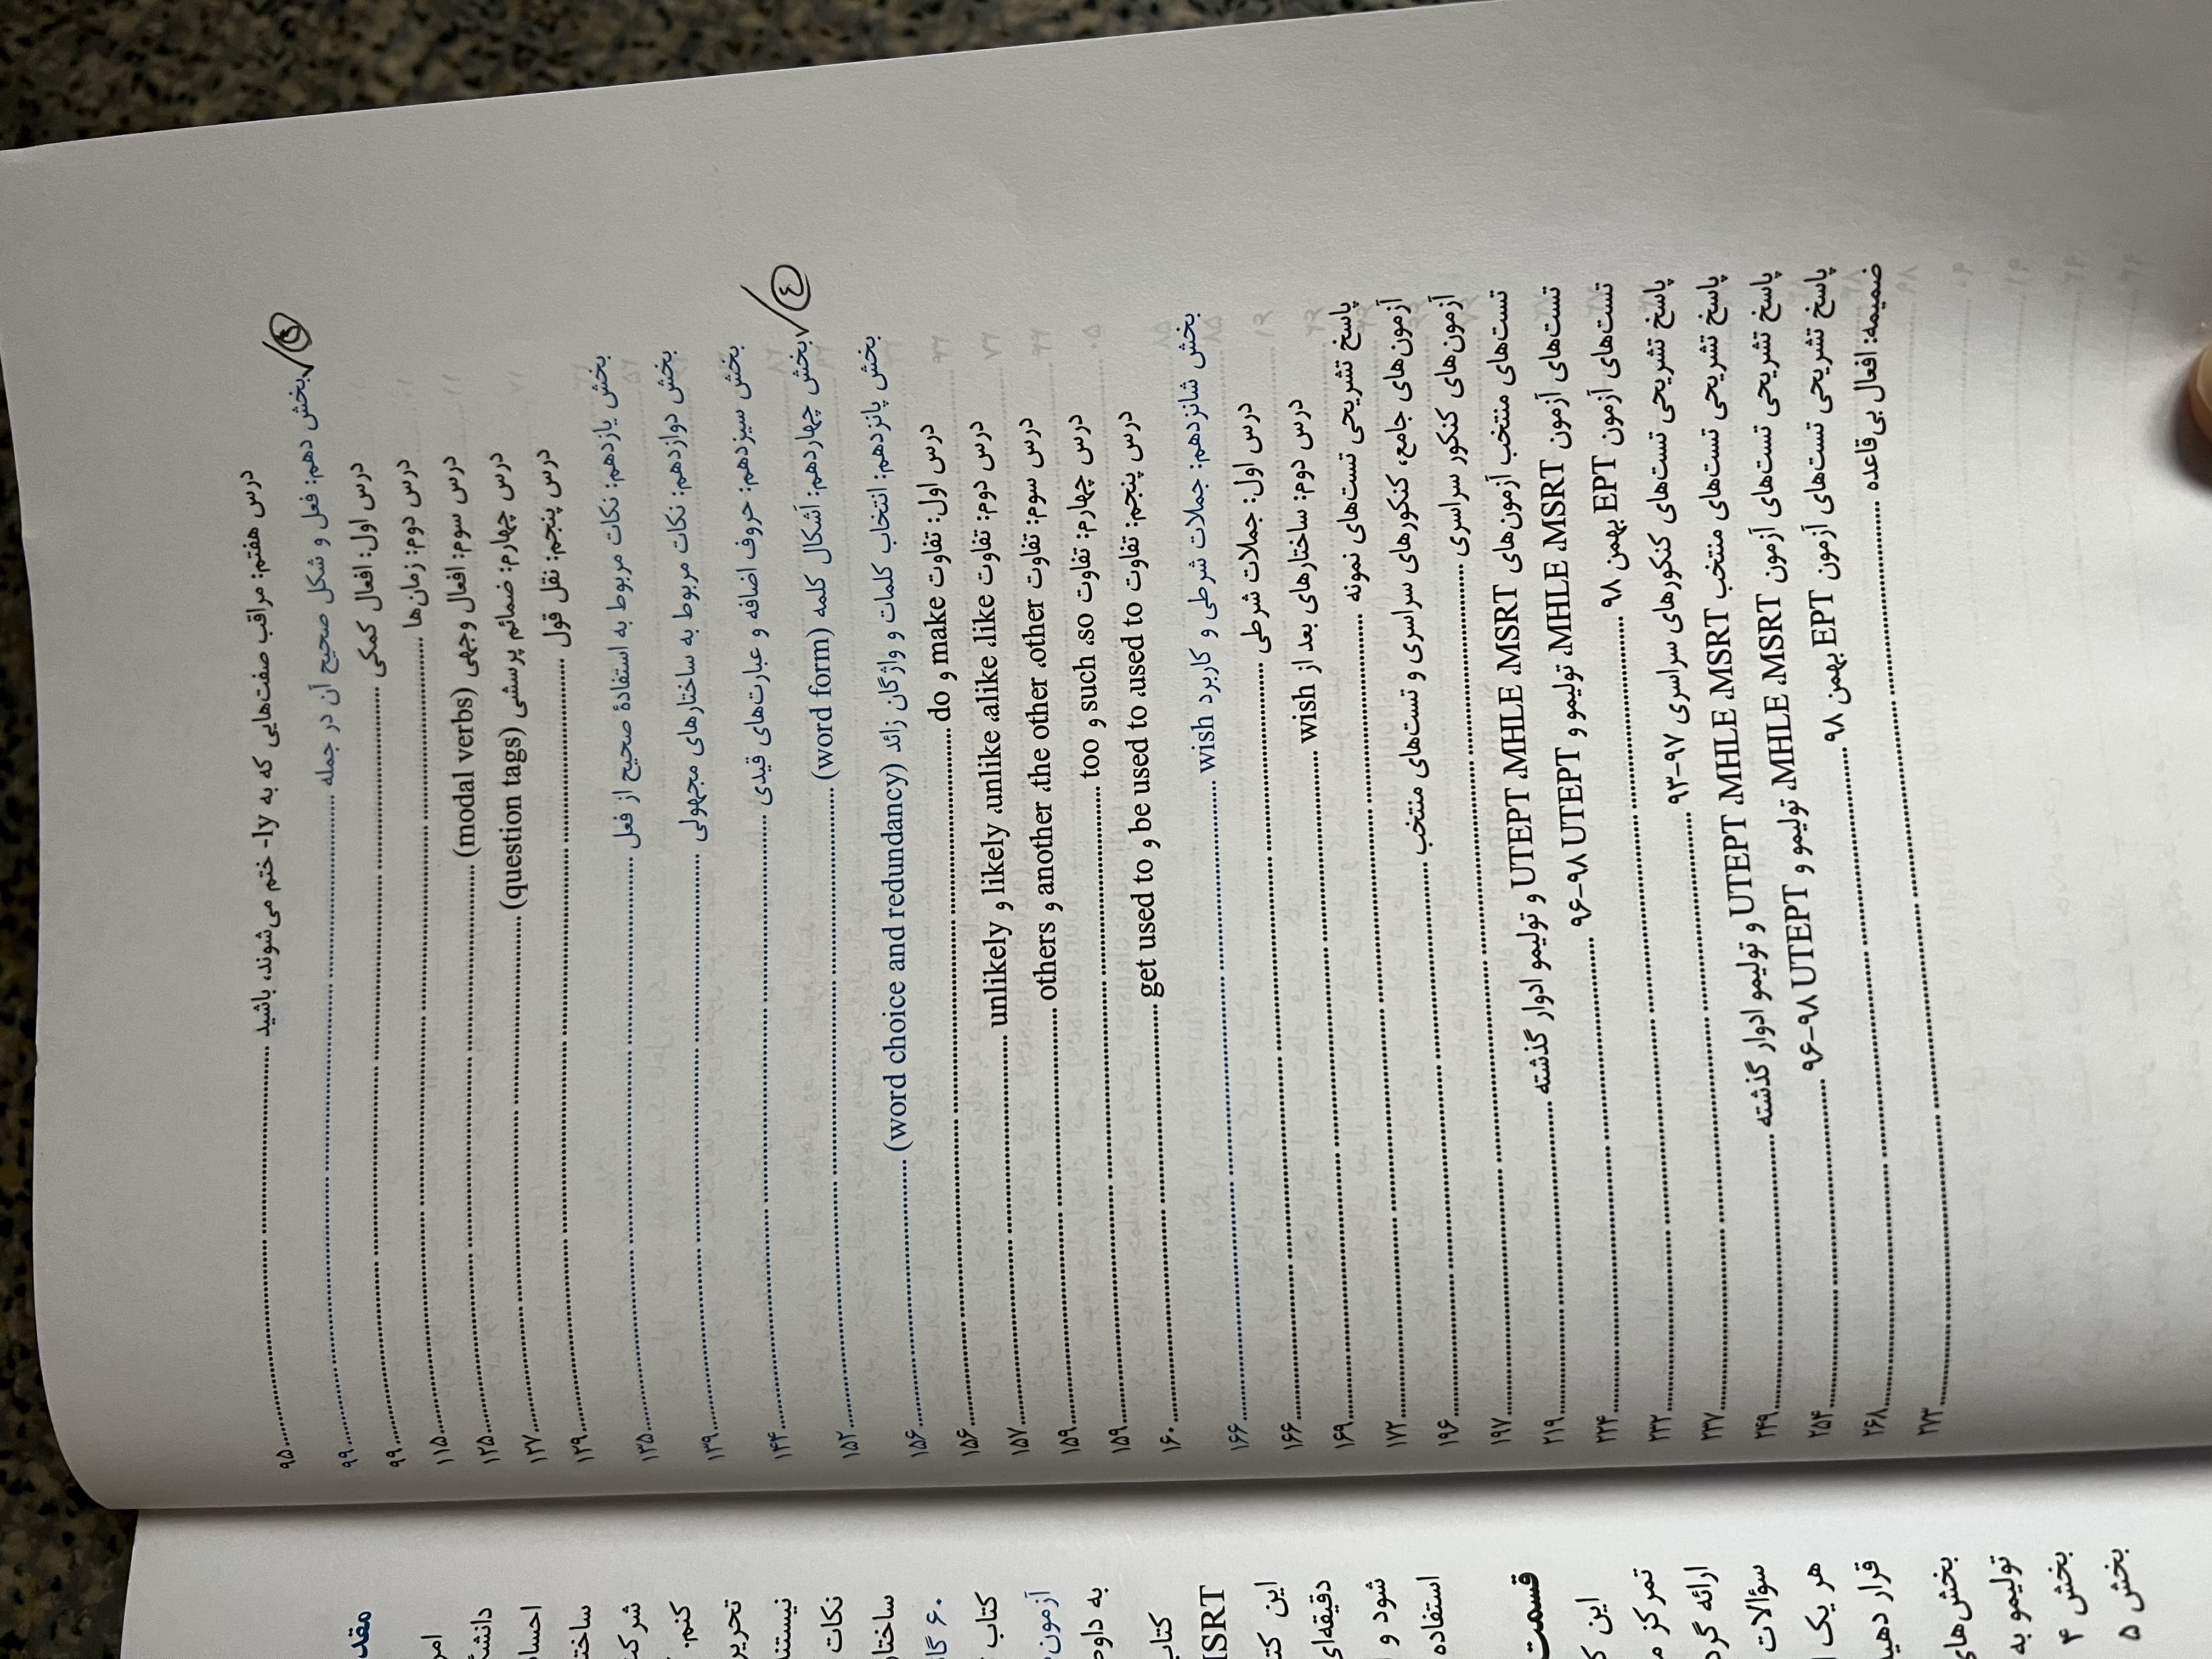 درس هفتم: مراقب صفت‌هایی که به ly- ختم می‌شوند، باشید ........ ۹۵
بخش دهم: فعل و شکل صحیح آن در جمله ........ ۹۹
درس اول: افعال کمکی ........ ۹۹
درس دوم: زمان‌ها ........ ۱۱۵
درس سوم: افعال وجهی (modal verbs) ........ ۱۲۵
درس چهارم: ضمائم پرسشی (question tags) ........ ۱۲۷
درس پنجم: نقل قول ........ ۱۲۹
بخش یازدهم: نکات مربوط به استفادهٔ صحیح از فعل ........ ۱۳۵
بخش دوازدهم: نکات مربوط به ساختارهای مجهولی ........ ۱۳۹
بخش سیزدهم: حروف اضافه و عبارت‌های قیدی ........ ۱۴۴
بخش چهاردهم: اَشکال کلمه (word form) ........ ۱۵۲
④
بخش پانزدهم: انتخاب کلمات و واژگان زائد (word choice and redundancy) ........ ۱۵۶
درس اول: تفاوت make و do ........ ۱۵۶
درس دوم: تفاوت like، alike، unlike، likely و unlikely ........ ۱۵۷
درس سوم: تفاوت other، the other، another و others ........ ۱۵۹
درس چهارم: تفاوت so، such و too ........ ۱۵۹
درس پنجم: تفاوت used to، be used to و get used to ........ ۱۶۰
بخش شانزدهم: جملات شرطی و کاربرد wish ........ ۱۶۶
درس اول: جملات شرطی ........ ۱۶۶
درس دوم: ساختارهای بعد از wish ........ ۱۶۹
پاسخ تشریحی تست‌های نمونه ........ ۱۷۲
آزمون‌های جامع، کنکورهای سراسری و تست‌های منتخب ........ ۱۹۶
آزمون‌های کنکور سراسری ........ ۱۹۷
تست‌های منتخب آزمون‌های MSRT، MHLE، UTEPT و تولیمو ادوار گذشته ........ ۲۱۹
تست‌های آزمون MSRT، MHLE، تولیمو و UTEPT ۹۶-۹۸ ........ ۲۲۴
تست‌های آزمون EPT بهمن ۹۸ ........ ۲۳۲
پاسخ تشریحی تست‌های کنکورهای سراسری ۹۷-۹۳ ........ ۲۳۷
پاسخ تشریحی تست‌های منتخب MSRT، MHLE، UTEPT و تولیمو ادوار گذشته ........ ۲۴۹
پاسخ تشریحی تست‌های آزمون MSRT، MHLE، تولیمو و UTEPT ۹۶-۹۸ ........ ۲۵۴
پاسخ تشریحی تست‌های آزمون EPT بهمن ۹۸ ........ ۲۶۸
ضمیمه: افعال بی‌قاعده ........ ۲۷۳
دانشگ
احسا
ساخت
شرکت
کنم.
تحریر
نیستند
نکات
ساختار
۶۰ گا
کتاب
آزمون
به داوط
کتاب
ISRT
این کت
دقیقه‌ای
شود و
استفاده
قسمت
این ک
تمرکز م
ارائه گرد
سؤالات
هر یک
قرار دهی
بخش‌های
تولیمو به
بخش ۴
بخش ۵